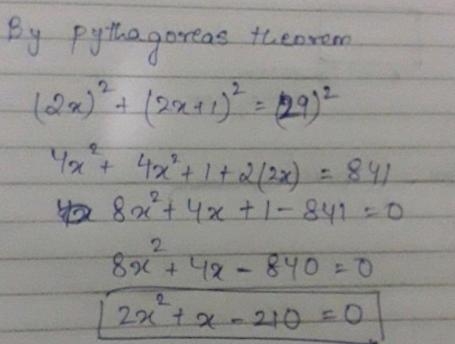 By pythagoreas theorem
(2x)² + (2x+1)² = (29)²
4x² + 4x² + 1 + 2(2x) = 841
8x² + 4x + 1 - 841 = 0
8x² + 4x - 840 = 0
2x² + x - 210 = 0